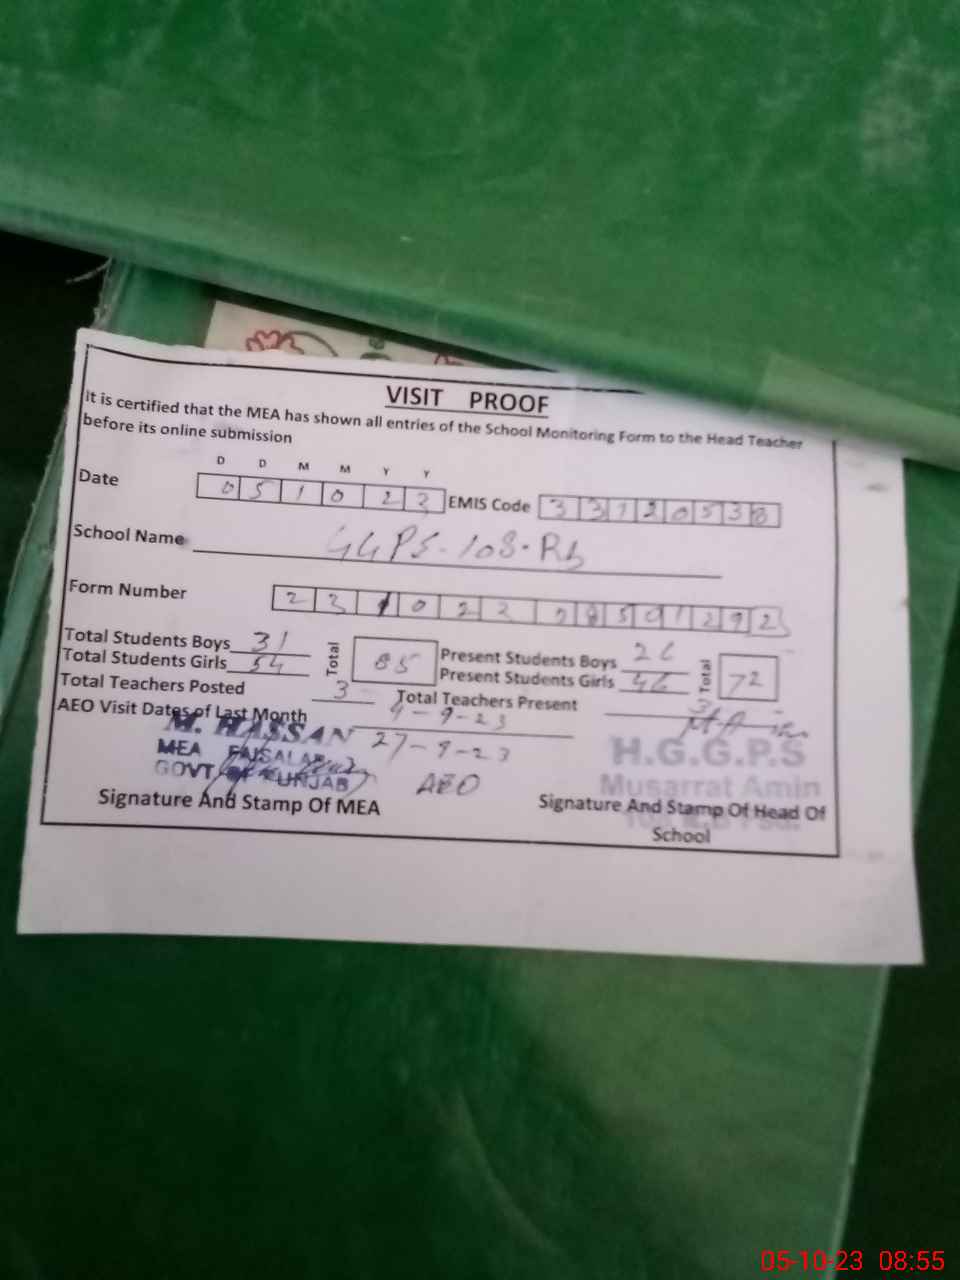 VISIT PROOF
It is certified that the MEA has shown all entries of the School Monitoring Form to the Head Teacher
before its online submission
D D M M Y Y
Date 0 5 1 0 2 3 EMIS Code 3 3 1 2 0 5 3 8
School Name GGPS-108-Rb
Form Number 2 3 1 0 2 2
Total Students Boys 31 Total 85 Present Students Boys 26 Total 72
Total Students Girls 54 Present Students Girls 46
Total Teachers Posted 3 Total Teachers Present 3
AEO Visit Dates of Last Month 9-23
27-9-23
AEO
M. HASSAN
MEA FAISALABAD
GOVT OF PUNJAB
Signature And Stamp Of MEA
M.Amin
H.G.G.P.S
Musarrat Amin
Signature And Stamp Of Head Of
School
05-10-23 08:55